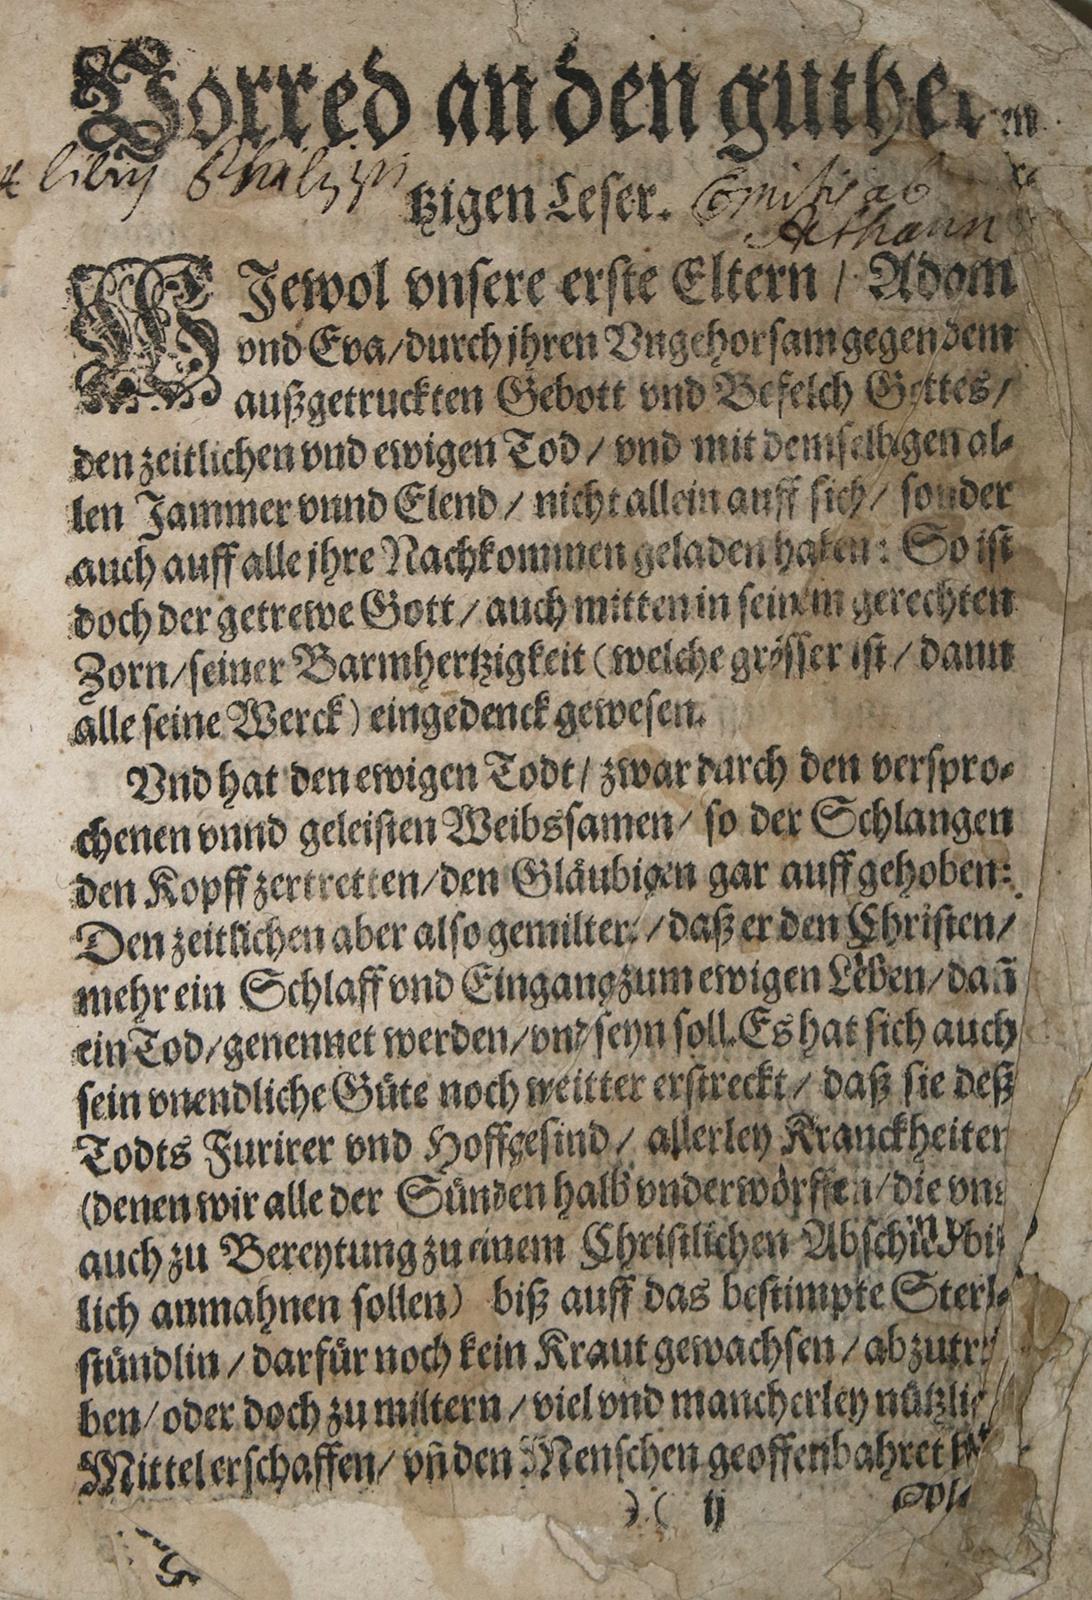 Vorred an den guther
tzigen Leser.
WIewol vnsere erste Eltern / Adam
vnd Eva/durch jhren Vngehorsam gegen dem
außgetruckten Gebott vnd Befelch Gottes/
den zeitlichen vnd ewigen Tod / vnd mit demselbigen al-
len Jammer vnnd Elend / nicht allein auff sich/ sonder
auch auff alle jhre Nachkommen geladen haben: So ist
doch der getrewe Gott / auch mitten in seinem gerechten
Zorn/seiner Barmhertzigkeit (welche grösser ist / dann
alle seine Werck) eingedenck gewesen.
Vnd hat den ewigen Todt/ zwar durch den verspro-
chenen vnnd geleisten Weibssamen/ so der Schlangen
den Kopff zertretten/den Gläubigen gar auffgehoben:
Den zeitlichen aber also gemiltert/daß er den Christen/
mehr ein Schlaff vnd Eingang zum ewigen Leben/ dañ
ein Tod/genennet werden/vnd seyn soll. Es hat sich auch
sein vnendliche Güte noch weitter erstreckt / daß sie deß
Todts Furirer vnd Hoffgesind / allerley Kranckheiten
(denen wir alle der Sünden halb vnderwörffen/die vns
auch zu Bereytung zu einem Christlichen Abschied bil-
lich anmahnen sollen) biß auff das bestimpte Sterb-
stündlin / darfür noch kein Kraut gewachsen / abzutrei-
ben/oder doch zu miltern / viel vnd mancherley nützli
Mittel erschaffen/ vñ den Menschen geoffenbahret
)( ij